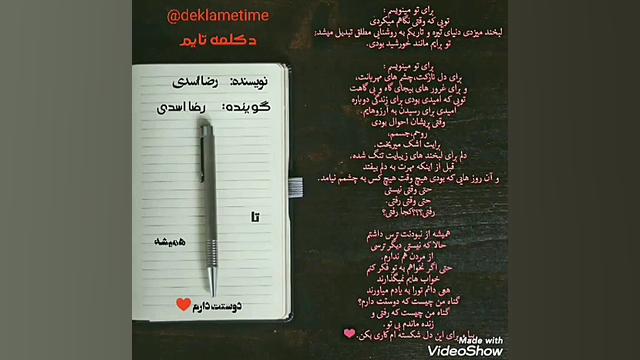 @deklametime
دکلمه تایم
نویسنده: رضا اسدی
گوینده: رضا اسدی
تا
همیشه
دوستت دارم❤
برای تو مینویسم :
تویی که وقتی نگاهم میکردی
لبخند میزدی دنیای تیره و تاریکم به روشنایی مطلق تبدیل میشد;
تو برایم مانند خورشید بودی.
برای تو مینویسم :
برای دل نازکت,چشم های مهربانت,
و برای غرور های بیجای گاه و بی گاهت
تویی که امیدی بودی برای زندگی دوباره
امیدی برای رسیدن به آرزوهایم.
وقتی پریشان احوال بودی
روحم,جسمم,
برایت اشک میریخت.
دلم برای لبخند های زیبایت تنگ شده.
قبل از اینکه مهرت به دلم بیفتد
و آن روز هایی که بودی هیچ وقت هیچ کس به چشمم نیامد.
حتی وقتی نیستی
حتی وقتی رفتی.
رفتی؟؟؟کجا رفتی؟
همیشه از نبودنت ترس داشتم
حالا که نیستی دیگر ترسی
از مردن هم ندارم.
حتی اگر نخواهم به تو فکر کنم
خواب هایم نمیگذارند
هعی دائم تورا به یادم میاورند
گناه من چیست که دوستت دارم؟
گناه من چیست که رفتی و
زنده ماندم بی تو.
برای این دل شکسته ام کاری بکن.❤
Made with
VideoShow